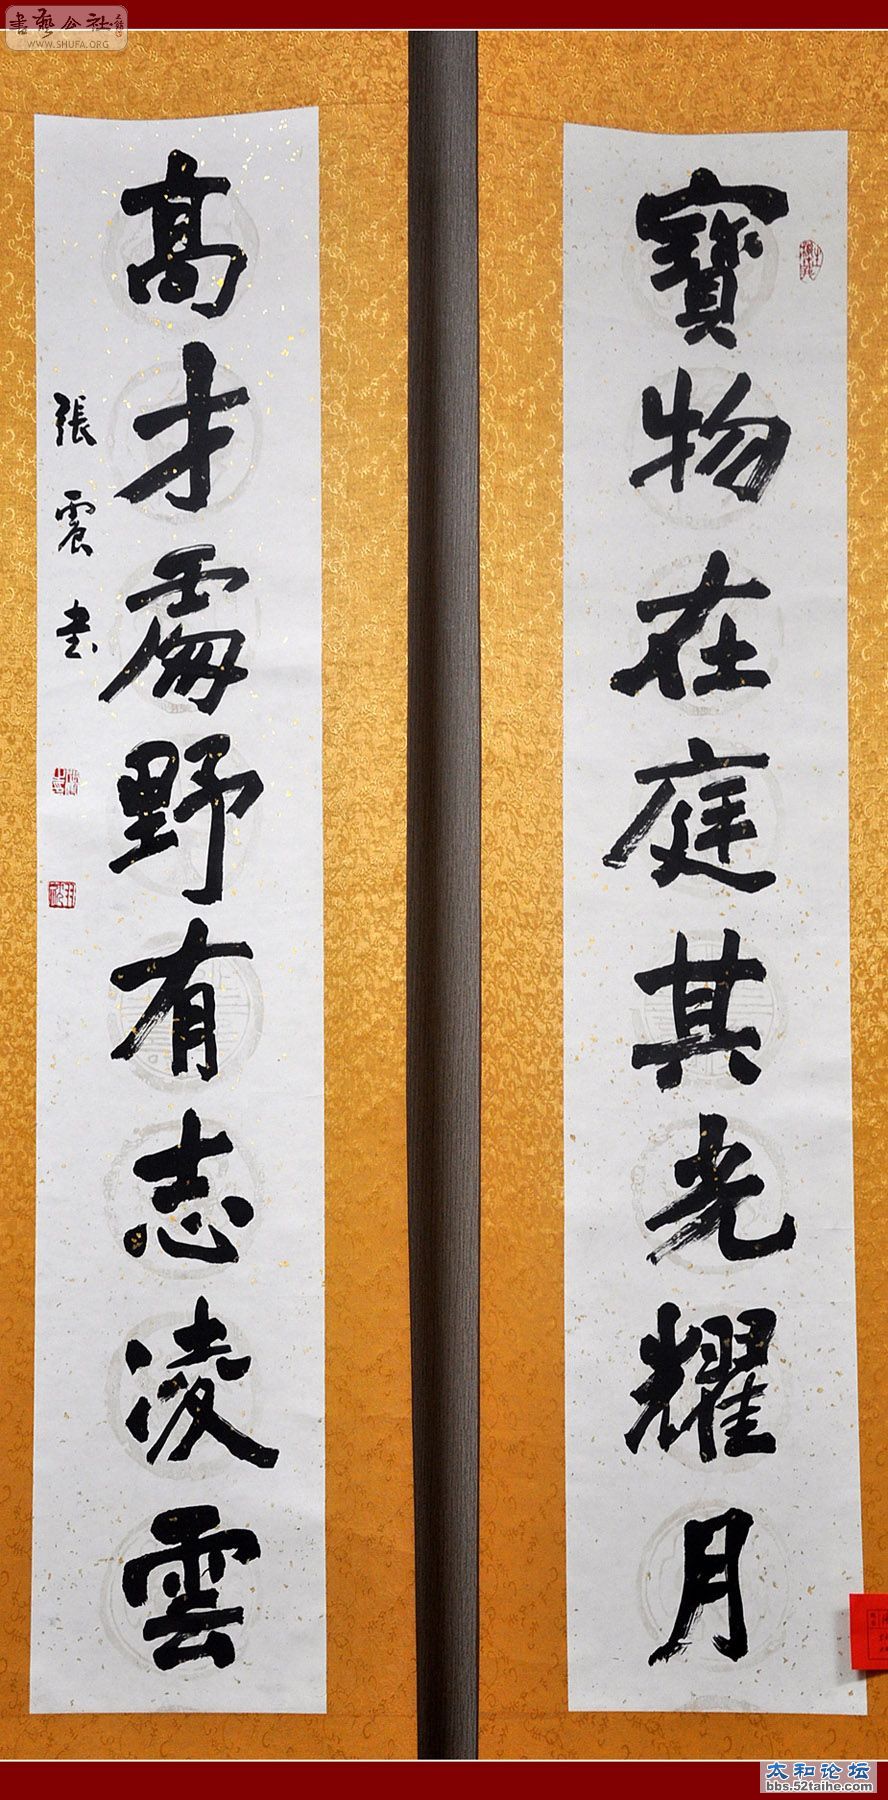 寶物在庭其光耀月
高才處野有志凌雲
張震书
書藝公社
WWW.SHUFA.ORG
太和论坛
bbs.52taihe.com